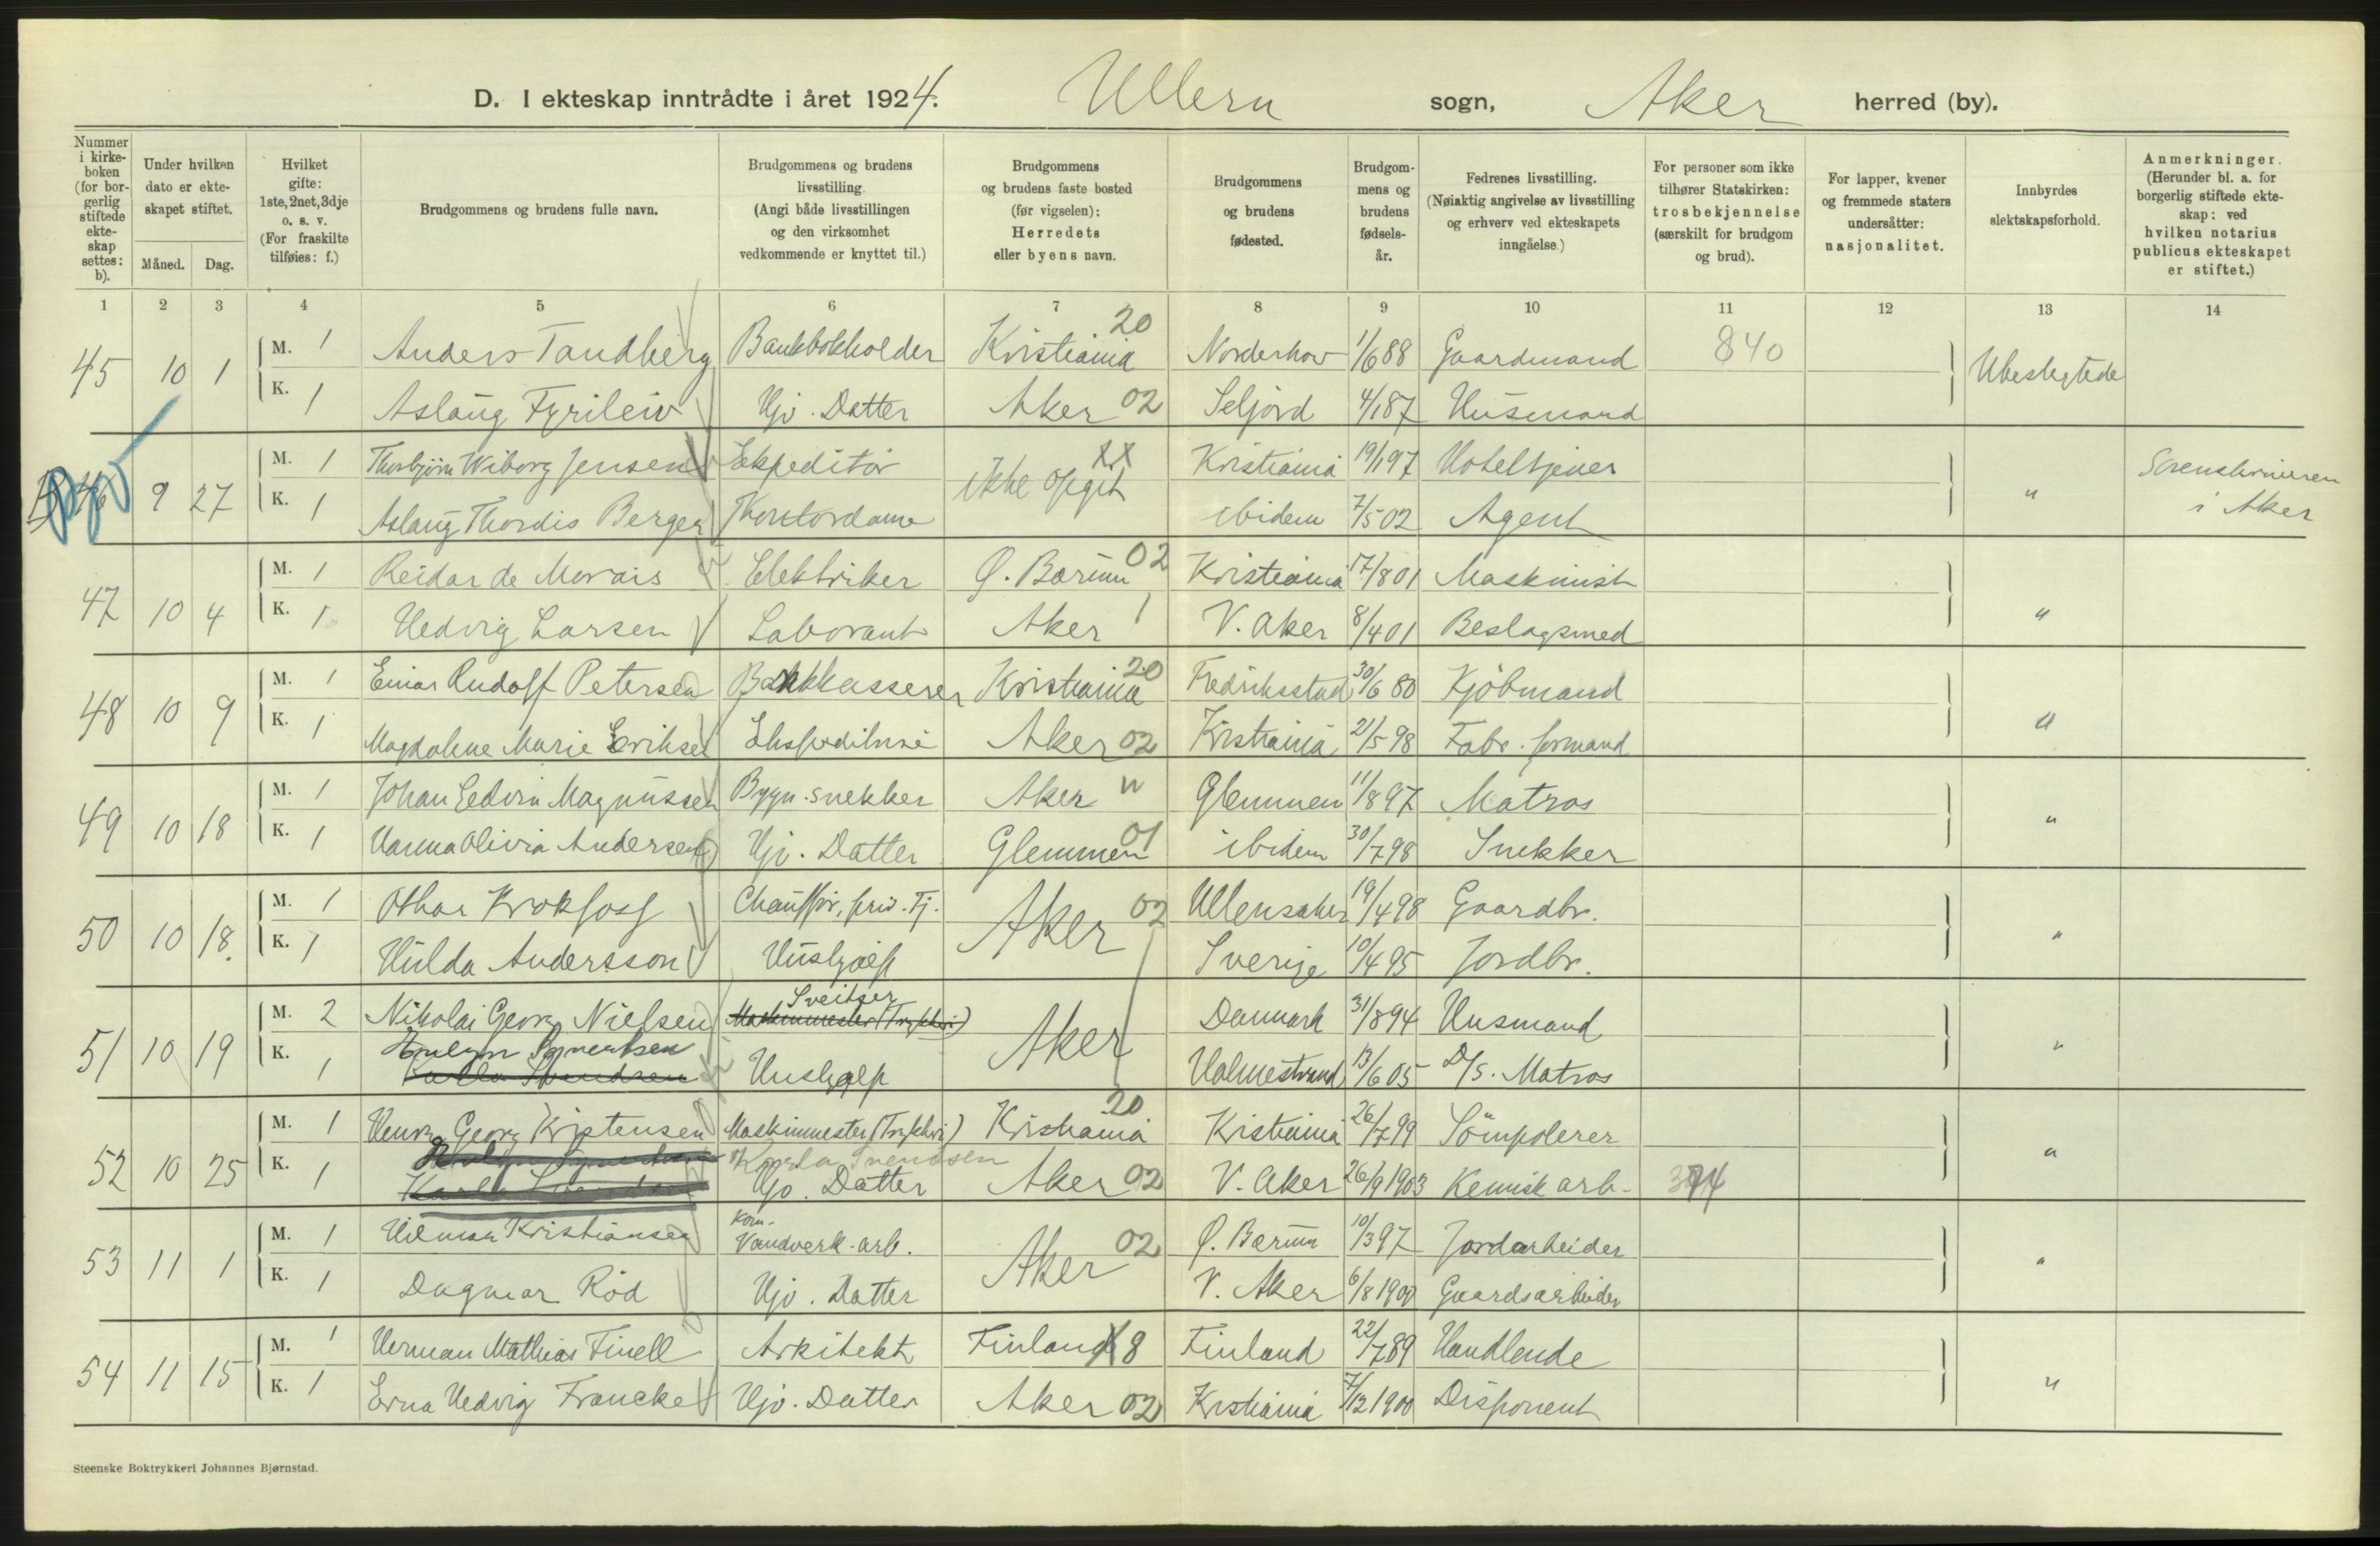 D. I ekteskap inntrådte i året 1924. Ullern sogn, Aker herred (by).
Nummer i kirkeboken (for borgerlig stiftede ekteskap settes: b).
Under hvilken dato er ekteskapet stiftet.
Måned. Dag.
Hvilket gifte: 1ste, 2net, 3dje o. s. v. (For fraskilte tilføies: f.)
Brudgommens og brudens fulle navn.
Brudgommens og brudens livsstilling. (Angi både livsstillingen og den virksomhet vedkommende er knyttet til.)
Brudgommens og brudens faste bosted (før vigselen): Herredets eller byens navn.
Brudgommens og brudens fødested.
Brudgommens og brudens fødselsår.
Fedrenes livsstilling. (Nøiaktig angivelse av livsstilling og erhverv ved ekteskapets inngåelse.)
For personer som ikke tilhører Statskirken: trosbekjennelse (særskilt for brudgom og brud).
For lapper, kvener og fremmede staters undersåtter: nasjonalitet.
Innbyrdes slektskapsforhold.
Anmerkninger. (Herunder bl. a. for borgerlig stiftede ekteskap: ved hvilken notarius publicus ekteskapet er stiftet.)
1 2 3 4 5 6 7 8 9 10 11 12 13 14
45 10 1 M. 1 Anders Tandberg Bankbokholder Kristiania 20 Norderhov 1/6 88 Gaardmand 840 Ubeslegtede
K. 1 Aslaug Fyrileiv Hjv. Datter Aker 02 Seljord 4/1 87 Husmand
46 9 27 M. 1 Thorbjörn Wiborg Jensen Ekspeditör ikke opgit XX Kristiania 19/1 97 Hoteltjener " Sorenskriveren i Aker
K. 1 Aslaug Thordis Berger Kontordame ibidem 7/5 02 Agent
47 10 4 M. 1 Reidar de Morais Elektriker Ø. Bærum 02 Kristiania 17/8 01 Maskinist "
K. 1 Hedvig Larsen Laborant Aker V. Aker 8/4 01 Beslagsmed
48 10 9 M. 1 Einar Rudolf Petersen Bankkasserer Kristiania 20 Fredriksstad 30/6 80 Kjöbmand "
K. 1 Magdalene Marie Eriksen Ekspeditrise Aker 02 Kristiania 21/5 98 Fabr. formand
49 10 18 M. 1 Johan Edvin Magnussen Bygn. snekker Aker " Glemmen 11/8 97 Matros "
K. 1 Hanna Olivia Andersen Hjv. Datter Glemmen 01 ibidem 30/7 98 Snekker
50 10 18. M. 1 Othar Krokfoss Chauffør, priv. Tj. Aker 02 Ullensaker 19/4 98 Gaardbr. "
K. 1 Hulda Andersson Hushjælp Sverige 10/4 95 Jordbr.
51 10 19 M. 2 Nikolai Georg Nielsen Sveitser Maskinmester (Trykkeri) Aker Danmark 31/8 94 Husmand "
K. 1 Karla Svendsen Hushjælp Holmestrand 13/6 05 D/S. Matros
52 10 25 M. 1 Henry Georg Kristensen Maskinmester (Trykkeri) Kristiania 20 Kristiania 26/7 99 Sömpolerer "
K. 1 Karla Svendsen Karla Svendsen Hjv. Datter Aker 02 V. Aker 26/9 1903 Kemisk arb.
53 11 1 M. 1 Hilmar Kristiansen Kom. Vandverk-arb. Aker 02 Ø. Bærum 10/3 97 Jordarbeider "
K. 1 Dagmar Röd Hjv. Datter V. Aker 6/8 1900 Gaardsarbeider
54 11 15 M. 1 Herman Mathias Finell Arkitekt Finland X8 Finland 22/7 89 Handlende "
K. 1 Erna Hedvig Francke Hjv. Datter Aker 02 Kristiania 7/12 1900 Disponent
Steenske Boktrykkeri Johannes Bjørnstad.